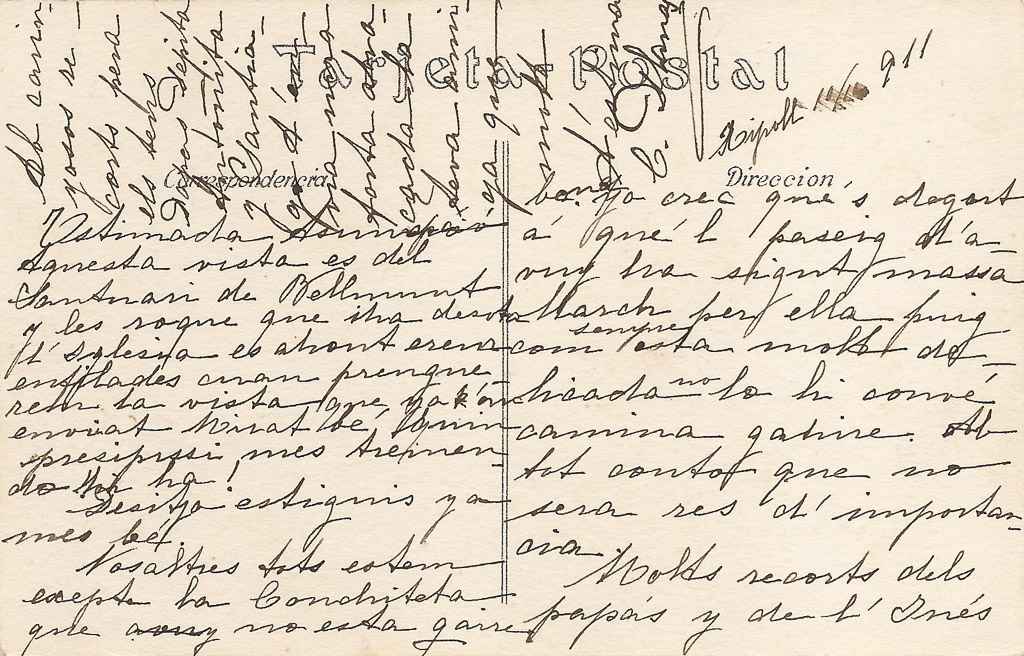 Tarjeta Postal
Ripoll 911
Correspondencia
Direccion
Estimada Asumpció
Aquesta vista es del
Santuari de Bellmunt
y les roques que i ha desota
l' Iglesia es ahont erem
enfilades cuan prengue-
rem la vista que ja t'
enviat Mirat bé, quin
presipissi mes tremen-
do hi ha!
Desitjo estiguis ya
mes bé.
Nosaltres tots estem
exepte la Conchiteta
que avuy no esta gaire
bona. Yo crec que's degut
á que'l paseig d'a-
vuy ha sigut massa
llarch per ella puig
com sempre esta molt de-
licada no lo hi convé
camina gaire. Ab
tot conto que no
sera res d' importan-
cia.
Molts recorts dels
papás y de l' Inés
Ab carin-
yosos re-
corts pera
els teus
Pares Pepita
Antonita
y Santia-
go
una
forta abra-
çada de la
seva ami-
ga que
molt